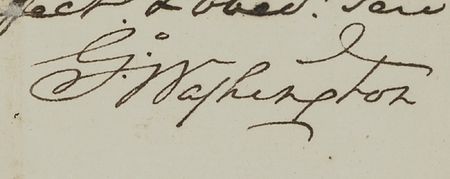 fect & obed.t Serv
G:o Washington